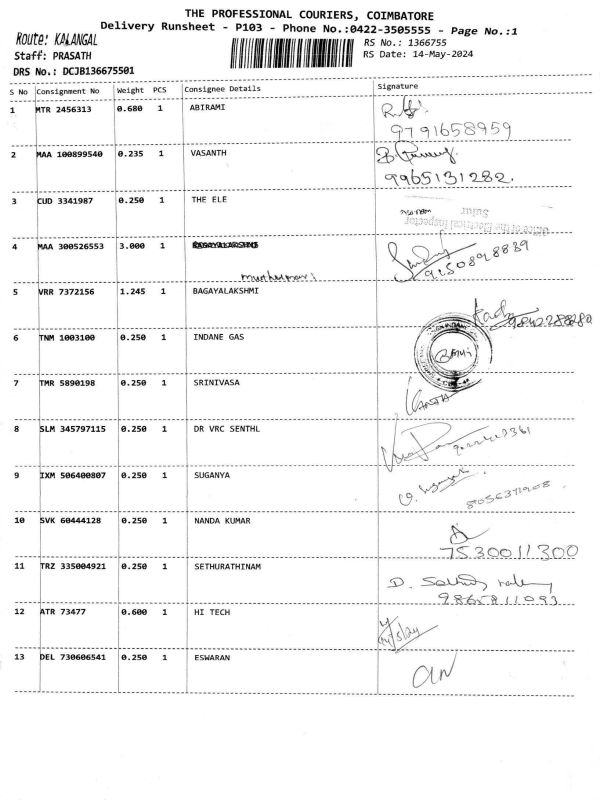 THE PROFESSIONAL COURIERS, COIMBATORE
Delivery Runsheet - P103 - Phone No.:0422-3505555 - Page No.:1
Route: KALANGAL
RS No.: 1366755
Staff: PRASATH
RS Date: 14-May-2024
DRS No.: DCJB136675501
S No Consignment No Weight PCS Consignee Details Signature
1 MTR 2456313 0.680 1 ABIRAMI
9791658959
2 MAA 100899540 0.235 1 VASANTH
9965131282.
3 CUD 3341987 0.250 1 THE ELE
Office of the Electrical Inspector
Sulur
4 MAA 300526553 3.000 1
9150898839
5 VRR 7372156 1.245 1 BAGAYALAKSHMI
6 TNM 1003100 0.250 1 INDANE GAS
7 TMR 5890198 0.250 1 SRINIVASA
8 SLM 345797115 0.250 1 DR VRC SENTHL
9 IXM 506400807 0.250 1 SUGANYA
10 SVK 60444128 0.250 1 NANDA KUMAR
7530011300
11 TRZ 335004921 0.250 1 SETHURATHINAM
9865811093
12 ATR 73477 0.600 1 HI TECH
13 DEL 730606541 0.250 1 ESWARAN